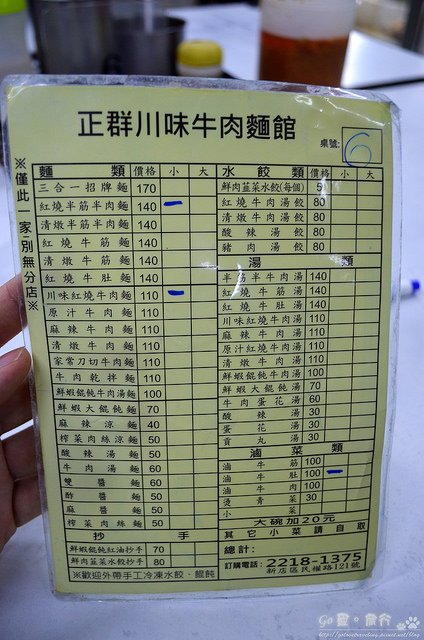 正群川味牛肉麵館
桌號: 6
※僅此一家，別無分店※
麵類 價格 小 大
三合一招牌麵 170
紅燒半筋半肉麵 140
清燉半筋半肉麵 140
紅燒牛筋麵 140
清燉牛筋麵 140
紅燒牛肚麵 140
川味紅燒牛肉麵 110
原汁牛肉麵 110
麻辣牛肉麵 110
清燉牛肉麵 110
家常刀切牛肉麵 110
牛肉乾拌麵 110
鮮蝦餛飩牛肉湯麵 100
鮮蝦大餛飩麵 70
麻辣涼麵 40
榨菜肉絲涼麵 50
酸辣湯麵 50
牛肉湯麵 60
雙醬麵 60
酢醬麵 50
麻醬麵 50
榨菜肉絲麵 50
抄手
鮮蝦餛飩紅油抄手 70
鮮肉韮菜水餃抄手 80
※歡迎外帶手工冷凍水餃、餛飩
水餃類 價格 小 大
鮮肉韮菜水餃(每個) 5
紅燒牛肉湯餃 80
清燉牛肉湯餃 80
酸辣湯餃 80
豬肉湯餃 80
湯類
半筋半牛肉湯 140
紅燒牛筋湯 140
紅燒牛肚湯 140
川味紅燒牛肉湯 110
麻辣牛肉湯 110
原汁紅燒牛肉湯 110
清燉牛肉湯 110
鮮蝦餛飩牛肉湯 100
鮮蝦大餛飩湯 70
牛肉蛋花湯 60
酸辣湯 30
蛋花湯 30
貢丸湯 30
滷菜類
滷牛筋 100
滷牛肚 100
滷牛肉 100
燙青菜 30
小菜
大碗加20元
其它小菜請自取
總計:
訂購電話: 2218-1375
新店區民權路121號
Go 靈。旅行